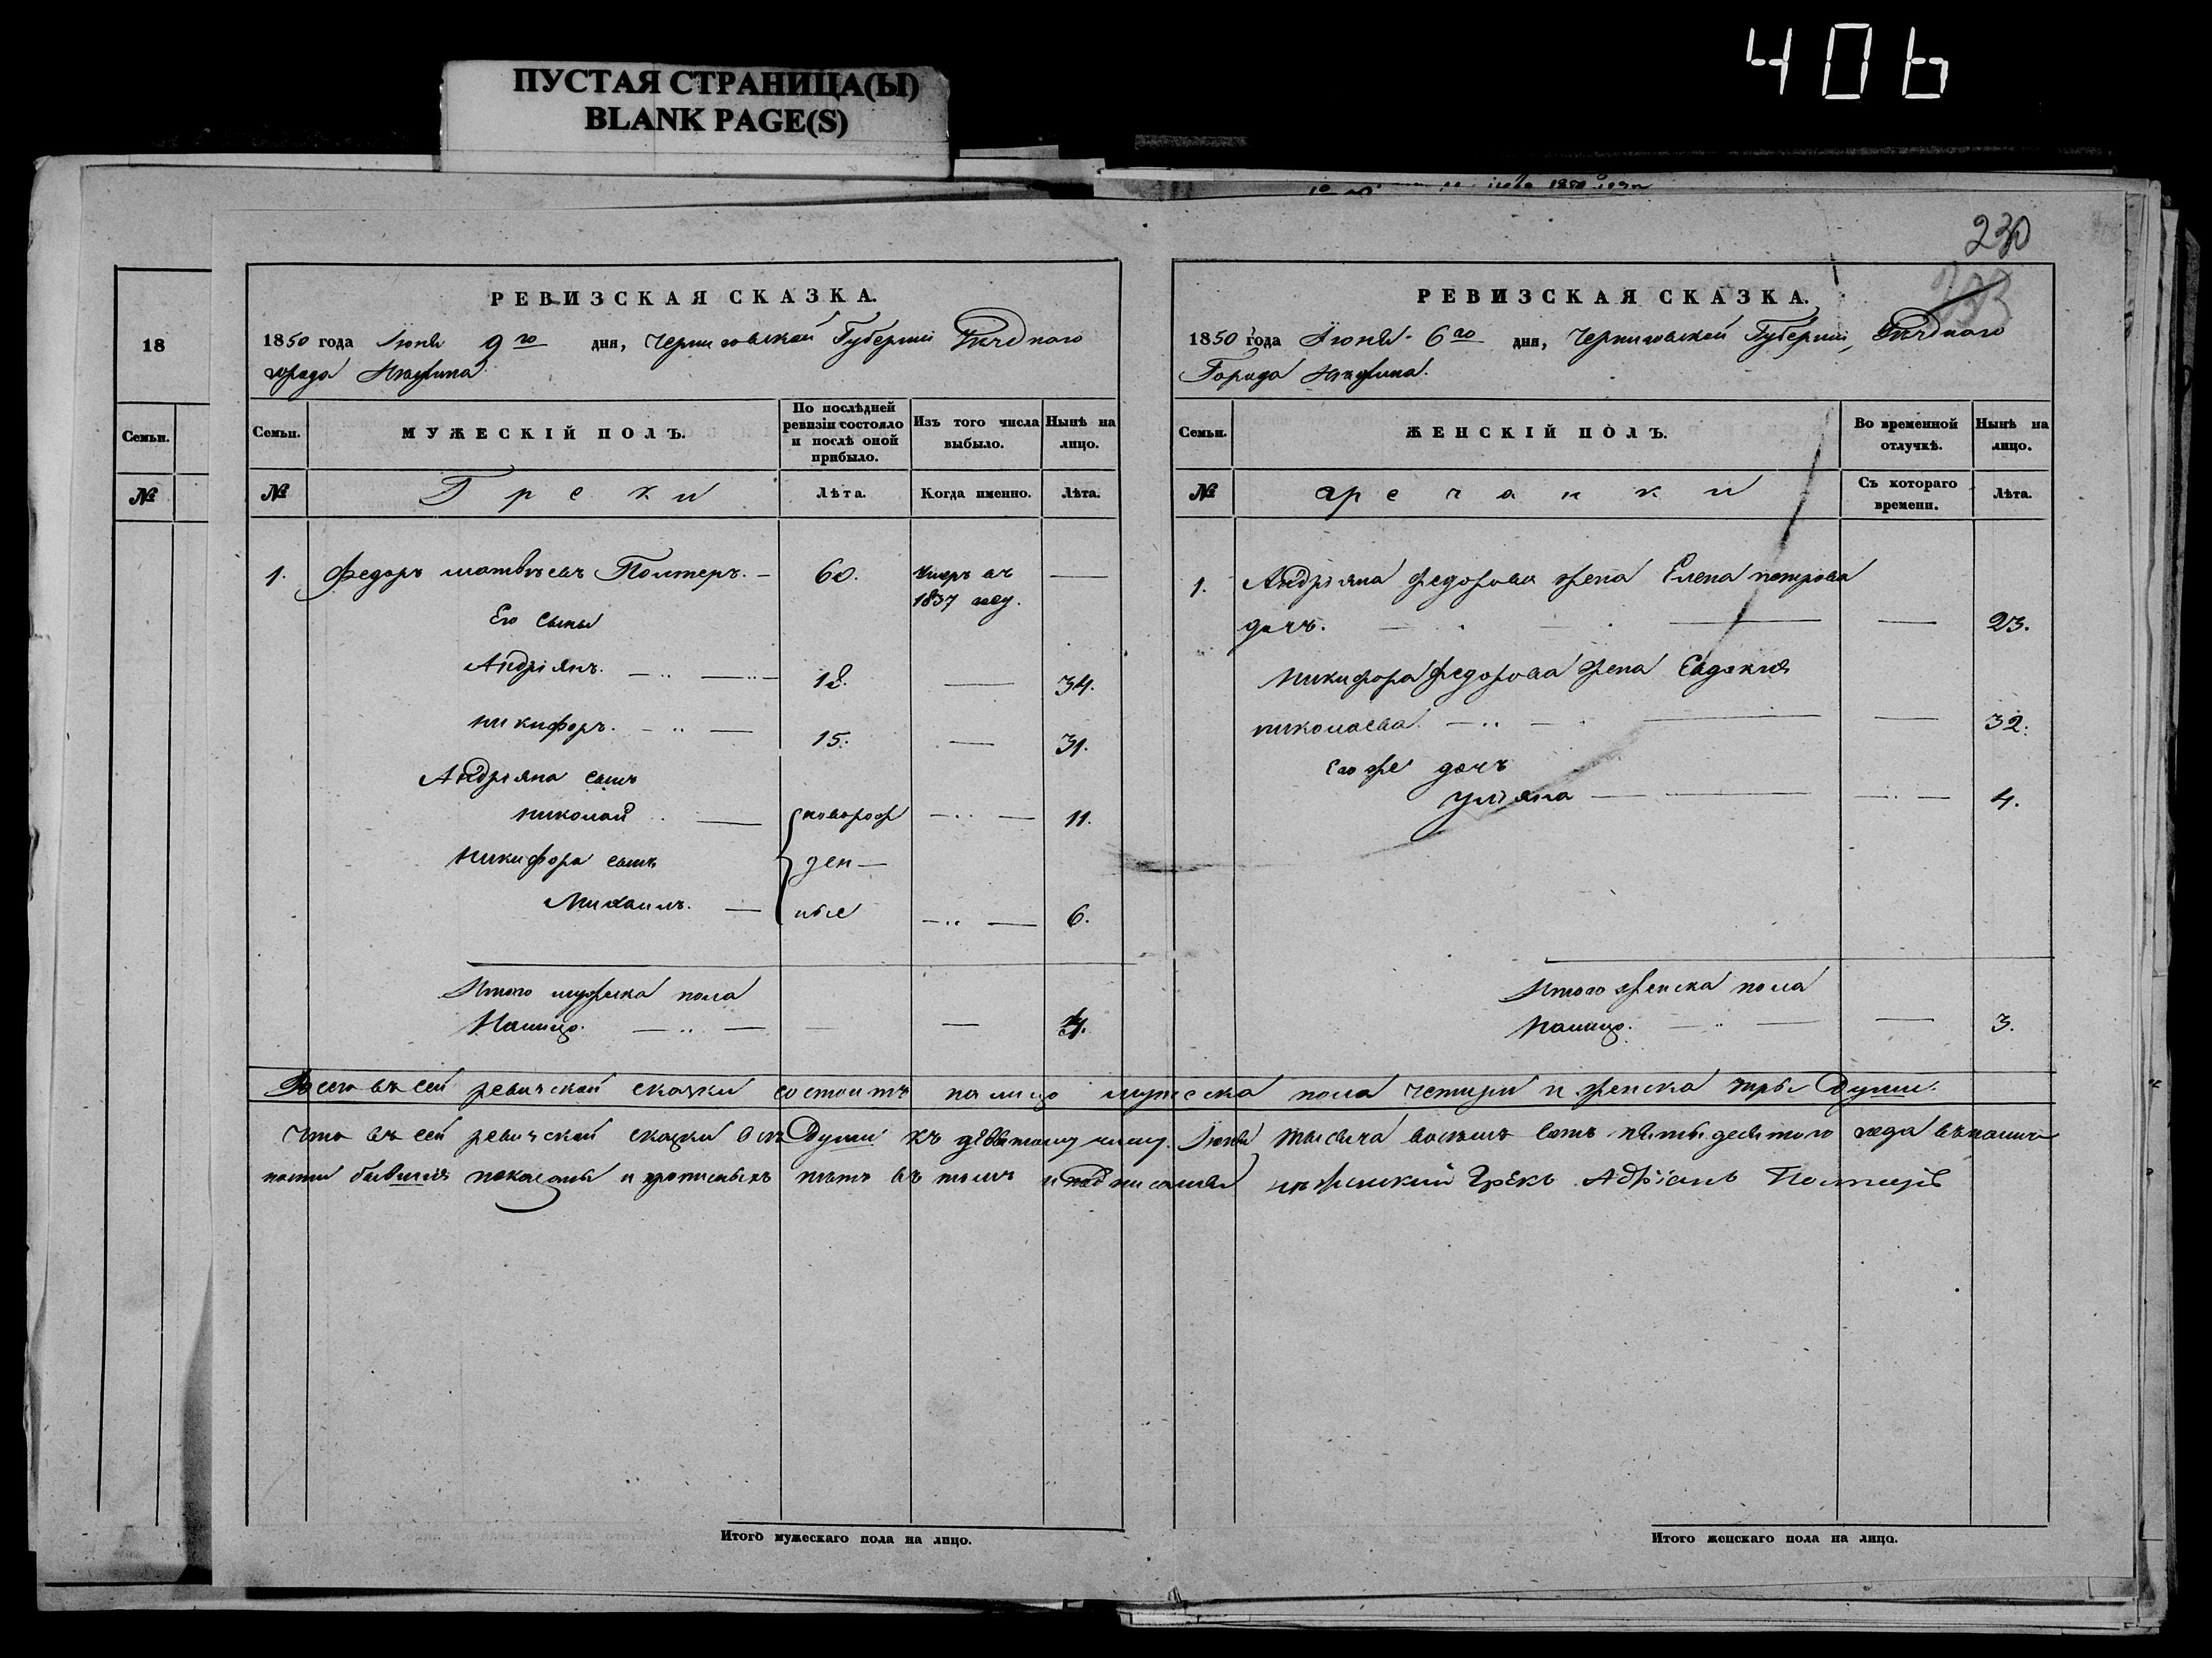 406
ПУСТАЯ СТРАНИЦА(Ы)
BLANK PAGE(S)
230
18
Семьи.
№
РЕВИЗСКАЯ СКАЗКА.
1850 года Іюня 9го дня, Черниговской Губерніи Уѣзднаго
города Нѣжина
Семьи. МУЖЕСКІЙ ПОЛЪ. По послѣдней ревизіи состояло и послѣ оной прибыло. Изъ того числа выбыло. Нынѣ на лицо.
№ Греки Лѣта. Когда именно. Лѣта.
1. Федоръ Матвѣевъ Полтеръ. 60. умеръ въ
1837 году.
Его сыны
Андріянъ. 18. 34.
Никифоръ. 15. 31.
Андріяна сынъ
Николай новорож 11.
Никифора сынъ ден
Михаилъ. ные 6.
Итого мужеска пола
Налицо. 4.
РЕВИЗСКАЯ СКАЗКА.
1850 года Іюня 6го дня, Черниговской Губерніи, Уѣзднаго
Города Нѣжина.
Семьи. ЖЕНСКІЙ ПОЛЪ. Во временной отлучкѣ. Нынѣ на лицо.
№ Гречанки Съ котораго времени. Лѣта.
1. Андріяна Федорова жена Елена петрова
дочъ. 23.
Никифора Федорова жена Евдокия
николаева. 32.
Его же дочъ
Уліяна 4.
Итого женска пола
Налицо. 3.
Всего въ сей ревизской сказки состоитъ на лицо мужеска пола четыри и женска три Души.
Что въ сей ревизской сказки всѣ Души къ девятому числу Іюня тысяча восемъ сотъ пятьдесятого года въ налич
ности бывшия показаны и прописныхъ нѣтъ въ томъ и подписался нѣжинский Грекъ Адріанъ Полтеръ
Итого мужескаго пола на лицо.
Итого женскаго пола на лицо.